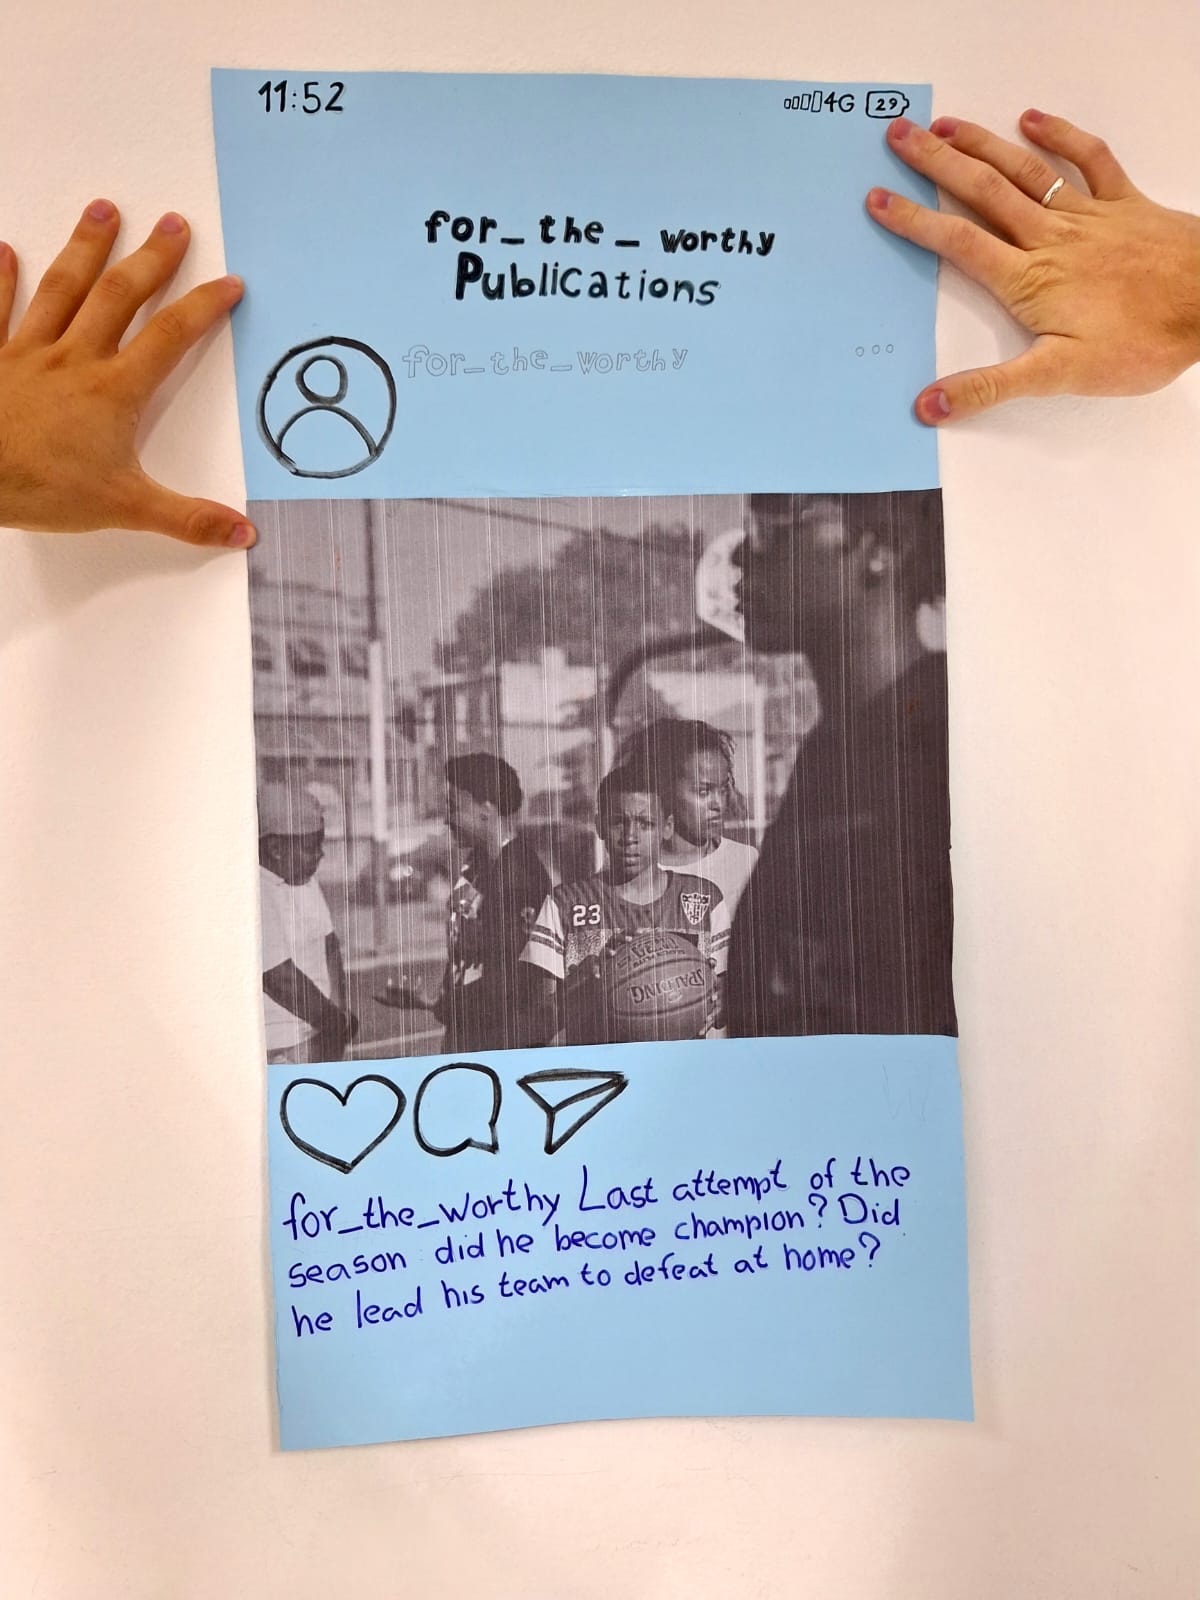 11:52
4G 29
for_the_worthy
Publications
for_the_worthy
23
SPALDING
for_the_worthy Last attempt of the
season did he become champion? Did
he lead his team to defeat at home?